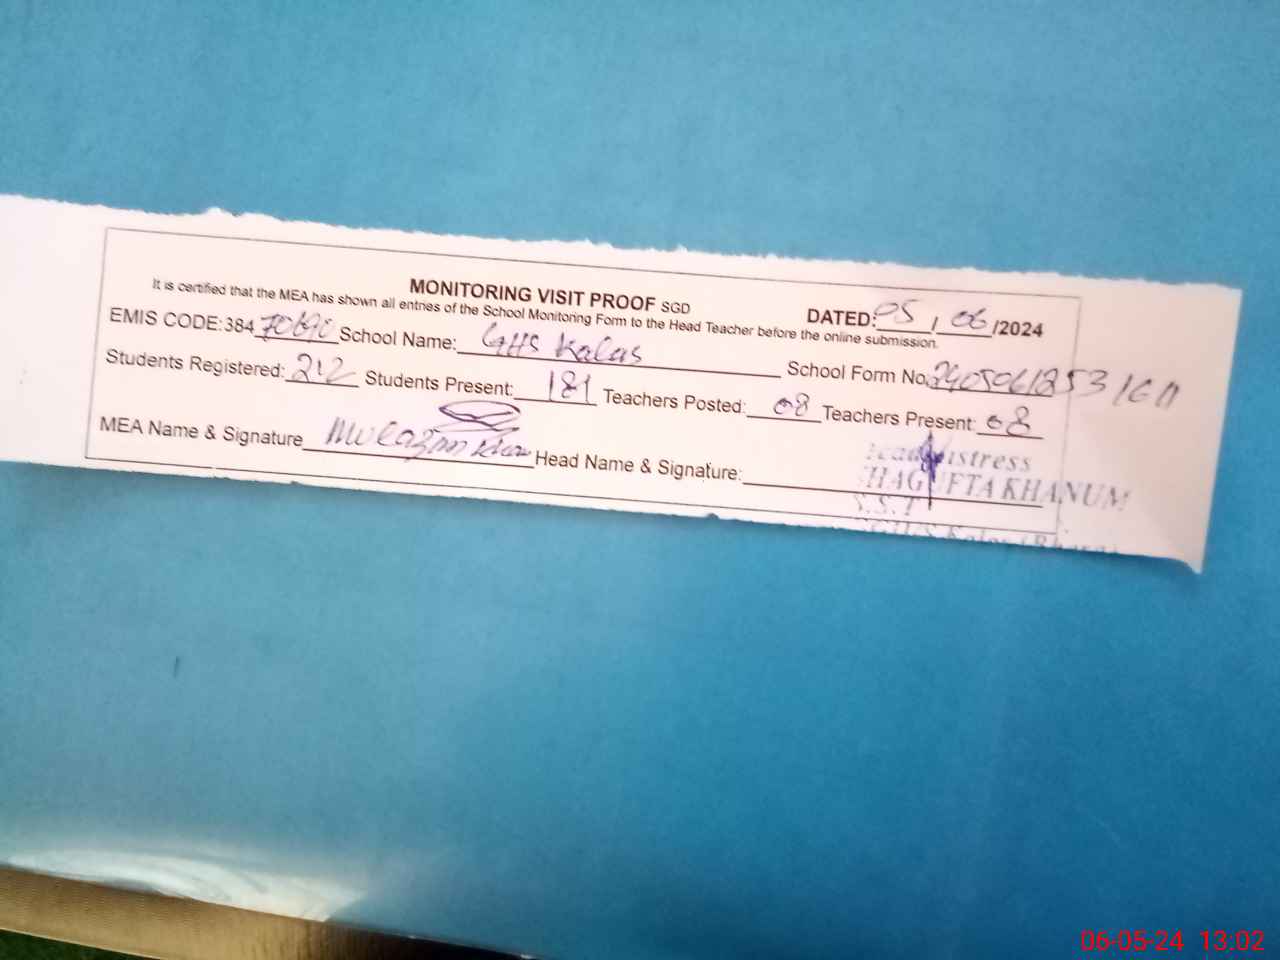 MONITORING VISIT PROOF SGD
DATED: 05 / 06 /2024
It is certified that the MEA has shown all entries of the School Monitoring Form to the Head Teacher before the online submission.
EMIS CODE:384 School Name: GHS Kalas School Form No.
Students Registered: 212 Students Present: 181 Teachers Posted: 08 Teachers Present: 08
MEA Name & Signature Head Name & Signature:
KHANUM
S.S.T
Kalas
06-05-24 13:02